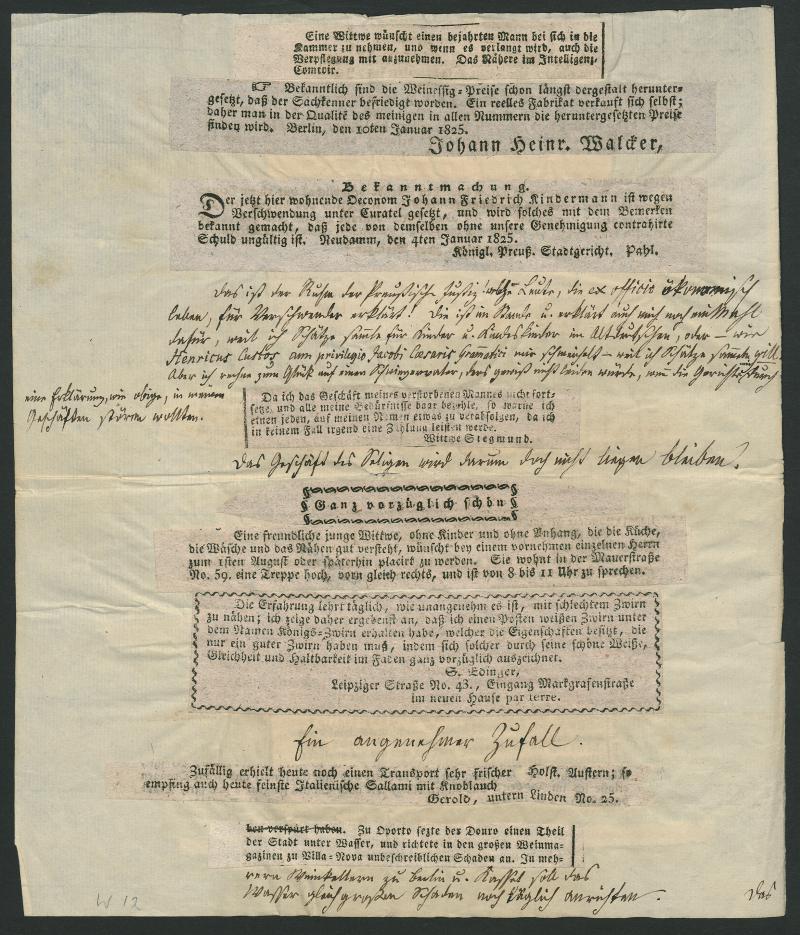 Eine Wittwe wünscht einen bejahrten Mann bei sich in die
Kammer zu nehmen, und wenn es verlangt wird, auch die
Verpflegung mit anzunehmen. Das Nähere im Intelligenz-
Comtoir.
☞ Bekanntlich sind die Weinessig-Preise schon längst dergestalt herunter-
gesetzt, daß der Sachkenner befriedigt worden. Ein reelles Fabrikat verkauft sich selbst;
daher man in der Qualité des meinigen in allen Nummern die heruntergesetzten Preise
finden wird. Berlin, den 10ten Januar 1825.
Johann Heinr. Walcker,
Bekanntmachung.
Der jetzt hier wohnende Oeconom Johann Friedrich Kindermann ist wegen
Verschwendung unter Curatel gesetzt, und wird solches mit dem Bemerken
bekannt gemacht, daß jede von demselben ohne unsere Genehmigung contrahirte
Schuld ungültig ist. Neudamm, den 4ten Januar 1825.
Königl. Preuß. Stadtgericht. Pahl.
Das ist der Ruhm der Preussische Justiz! Leute, die ex officio ökonomisch
leben, für Verschwender erklärt! Die ist im Stande u. erklärt auch mich noch einmahl
dafür, weil ich Schätze sammle für Kinder u. Kindeskinder im Altdeutschen, oder – wie
Henricus Custos cum privilegio Jacobi Caesaris grammatici mir schmeichelt – weil ich Schätze sammeln will.
Aber ich rechne zum Glück auf einen, ders gewiß nicht leiden würde, wenn die Gerichte durch
eine Erklärung, wie obige, in meinen
Geschäften stören wollten.
Da ich das Geschäft meines verstorbenen Mannes nicht fort-
setze, und alle meine Bedürfnisse baar bezahle, so warne ich
einen jeden, auf meinen Namen etwas zu verabfolgen, da ich
in keinem Fall irgend eine Zahlung leisten werde.
Wittwe Siegmund.
Das Geschäft des Seligen wird darum doch nicht liegen bleiben!
Ganz vorzüglich schön
Eine freundliche junge Wittwe, ohne Kinder und ohne Anhang, die die Küche,
die Wäsche und das Nähen gut versteht, wünscht bey einem vornehmen einzelnen Herrn
zum 1sten August oder späterhin placirt zu werden. Sie wohnt in der Mauerstraße
No. 59. eine Treppe hoch, vorn gleich rechts, und ist von 8 bis 11 Uhr zu sprechen.
Die Erfahrung lehrt täglich, wie unangenehm es ist, mit schlechtem Zwirn
zu nähen; ich zeige daher ergebenst an, daß ich einen Posten weißen Zwirn unter
dem Namen Königs-Zwirn erhalten habe, welcher die Eigenschaften besitzt, die
nur ein guter Zwirn haben muß, indem sich solcher durch seine schöne Weiße,
Gleichheit und Haltbarkeit im Faden ganz vorzüglich auszeichnet.
S. Edinger,
Leipziger Straße No. 43., Eingang Markgrafenstraße
im neuen Hause par terre.
Ein angenehmer Zufall.
Zufällig erhielt heute noch einen Transport sehr frischer Holst. Austern; so
empfing auch heute feinste Italienische Sallami mit Knoblauch
Gerold, untern Linden No. 25.
ben verspürt haben. Zu Oporto sezte der Douro einen Theil
der Stadt unter Wasser, und richtete in den großen Weinma-
gazinen zu Villa-Nova unbeschreiblichen Schaden an. In meh-
rern Weinkellern zu Berlin u. Kassel soll das
Wasser gleich großen Schaden noch täglich anrichten.
Das
W 12